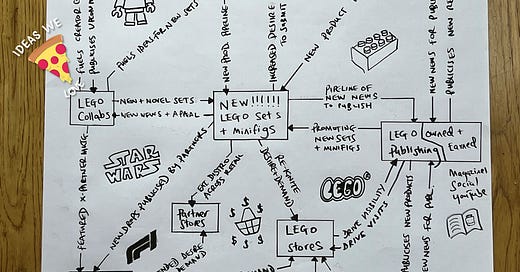 IDEAS WE
FUELS CREATOR
PUBLICISES
FUELS IDEAS FOR NEW SETS
NEW PROD PIPELINE
INCREASED DESIRE
TO SUBMIT
NEW PRODUCT
NEW NEWS FOR PUBL
PUBLICISES NEW
LEGO
Collabs
NEW + NOVEL SETS
NEW NEWS + APPEAL
NEW!!!!!!
LEGO Sets
+ minifigs
PIPELINE OF
NEW NEWS
TO PUBLISH
PROMOTING
NEW SETS
+ MINIFIGS
LEGO owned +
Publishing Earned
Magazines
Social
Youtube
FEATURED X-PARTNER
STAR
WARS
NEW DROPS PUBLICISED BY PARTNERS
EXT. DISTRO
ACROSS RETAIL
RE-IGNITE
DESIRE + DEMAND
LEGO
Partner
Stores
F1
LEGO
Stores
DRIVE VISIBILITY
DRIVE VISITS
PUBLICISES NEW PRODUCTS
NEW NEWS FOR
DESIRE
DEMAND